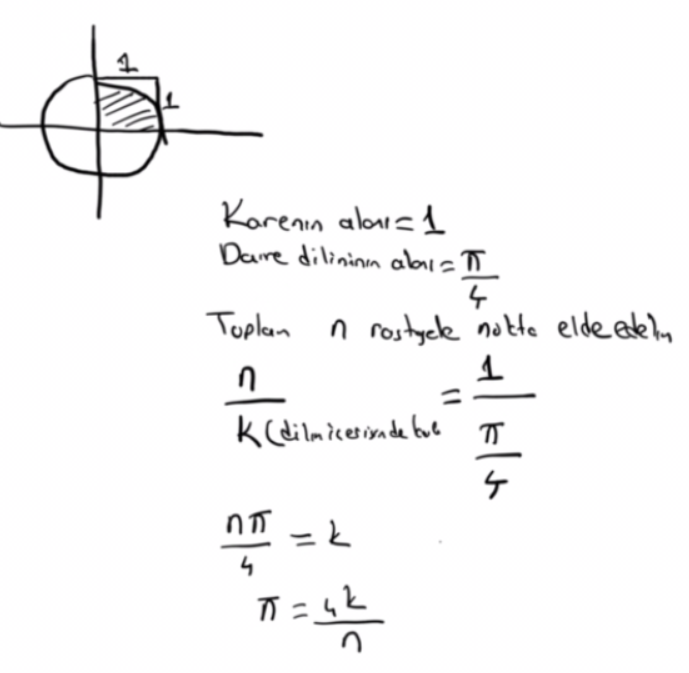 1
1
Karenın alanı = 1
Daire diliminin alanı = π/4
Toplam n rastgele nokta elde edelim
n/k (dilim içerisinde = 1/(π/4)
nπ/4 = k
π = 4k/n